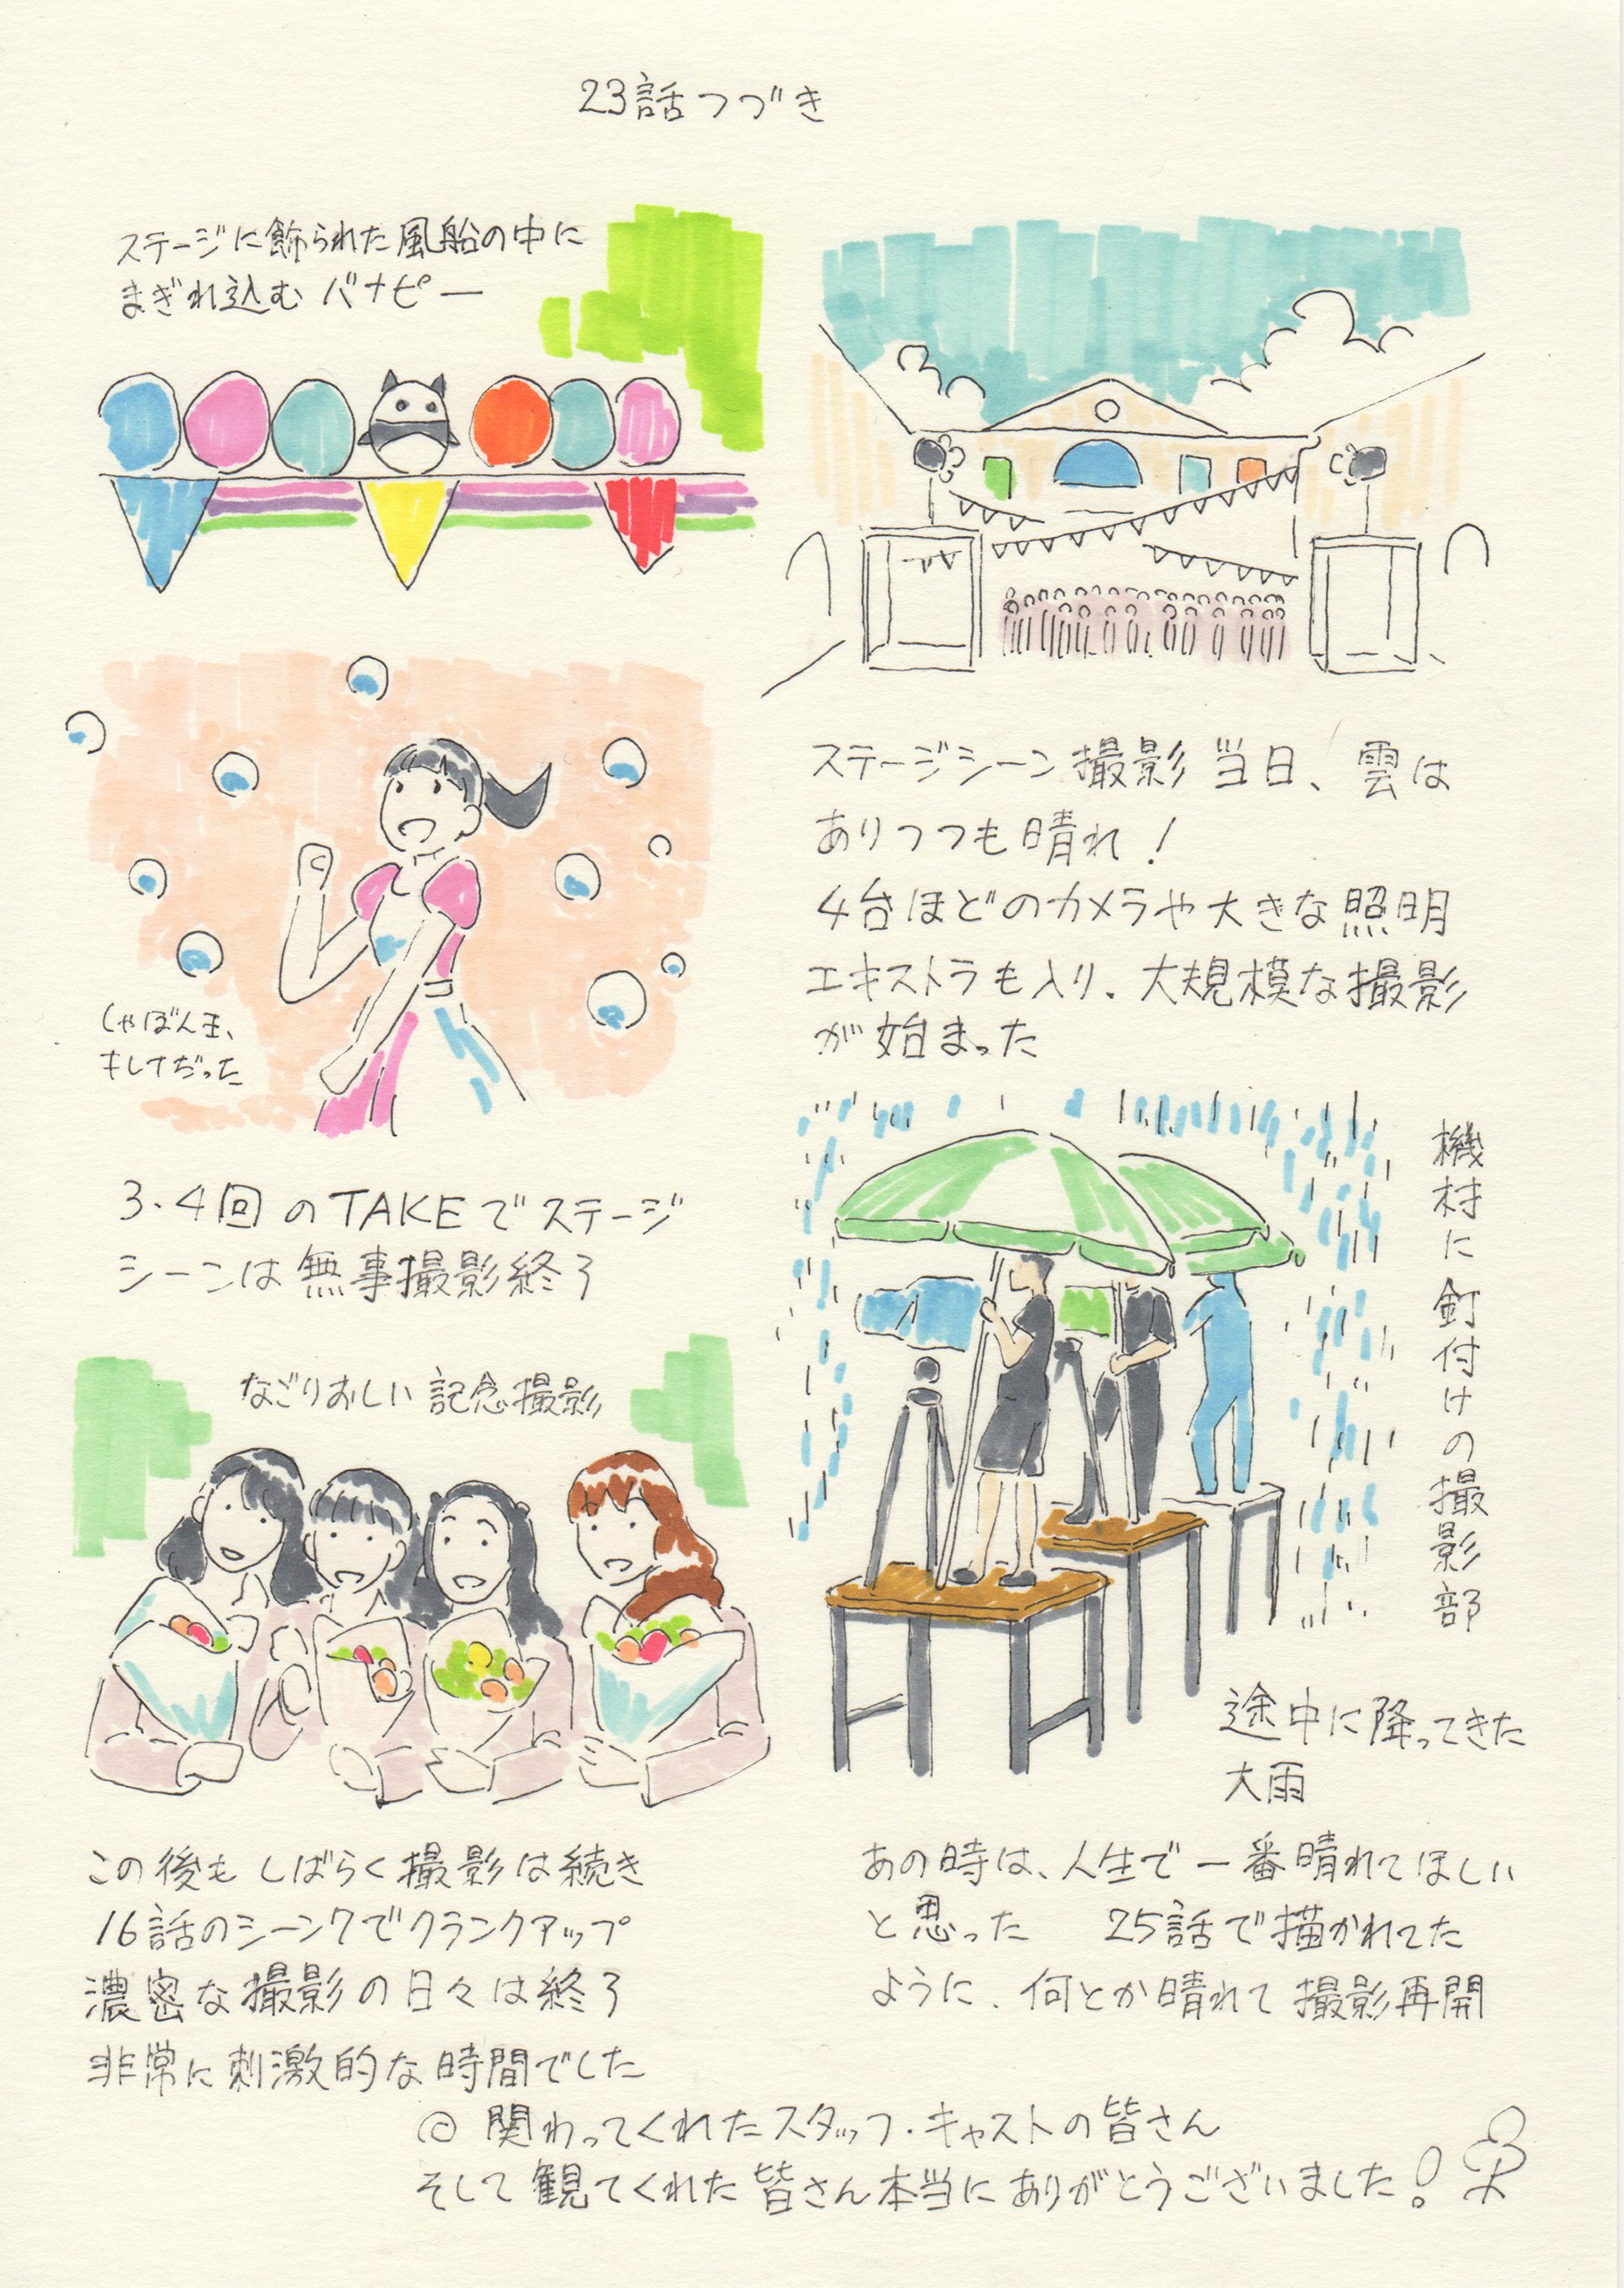 23話つづき
ステージに飾られた風船の中に
まぎれ込む バナピー
ステージシーン撮影当日、雲は
ありつつも晴れ！
4台ほどのカメラや大きな照明
エキストラも入り、大規模な撮影
が始まった
しゃぼん玉、
キレイだった
機材に釘付けの撮影部
途中に降ってきた
大雨
あの時は、人生で一番晴れてほしい
と思った 25話で描かれてた
ように、何とか晴れて撮影再開
3.4回のTAKEでステージ
シーンは無事撮影終了
なごりおしい 記念撮影
この後もしばらく撮影は続き
16話のシーン7でクランクアップ
濃密な撮影の日々は終了
非常に刺激的な時間でした
◎ 関わってくれたスタッフ・キャストの皆さん
そして観てくれた皆さん本当にありがとうございました！